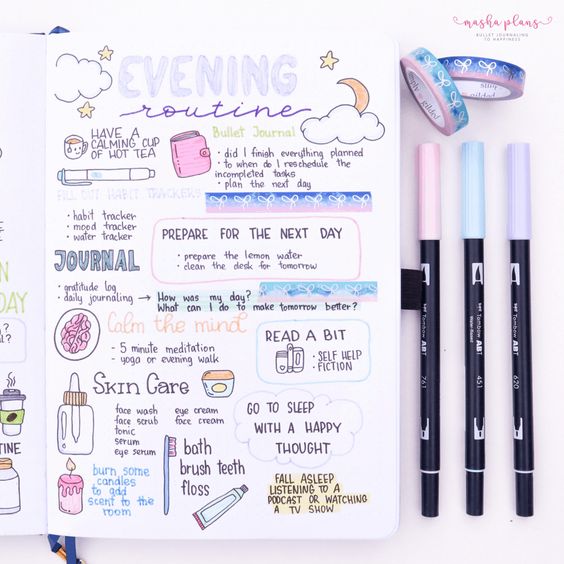 masha plans
BULLET JOURNALING
TO HAPPINESS
EVENING
routine
HAVE A
CALMING CUP
OF HOT TEA
Bullet Journal
• did I finish everything planned
• to when do I reschedule the
incompleted tasks
• plan the next day
FILL OUT HABIT TRACKERS
• habit tracker
• mood tracker
• water tracker
PREPARE FOR THE NEXT DAY
• prepare the lemon water
• clean the desk for tomorrow
JOURNAL
• gratitude log
• daily journaling → How was my day?
What can I do to make tomorrow better?
Calm the mind
- 5 minute meditation
- yoga or evening walk
READ A BIT
• SELF HELP
• FICTION
Skin Care
face wash
face scrub
tonic
serum
eye serum
eye cream
face cream
GO TO SLEEP
WITH A HAPPY
THOUGHT
burn some
candles
to add
scent to the
room
bath
brush teeth
floss
FALL ASLEEP
LISTENING TO A
PODCAST OR WATCHING
A TV SHOW
N
DAY
?
?
TINE
gilded
Tombow ABT
761
Tombow ABT
451
Tombow ABT
620